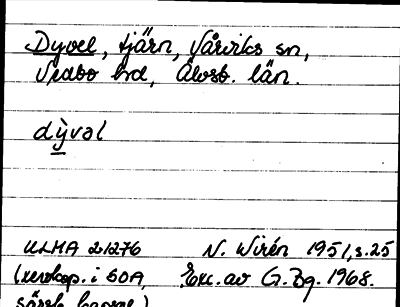 Dyvel, tjärn, Vårviks sn,
Vedbo hd, Älvsb. län.
dỳvəl
ULMA 21276 N. Wirén 1951, s. 25
(xerokop. i SOA, Exc. av G. Bg. 1968.